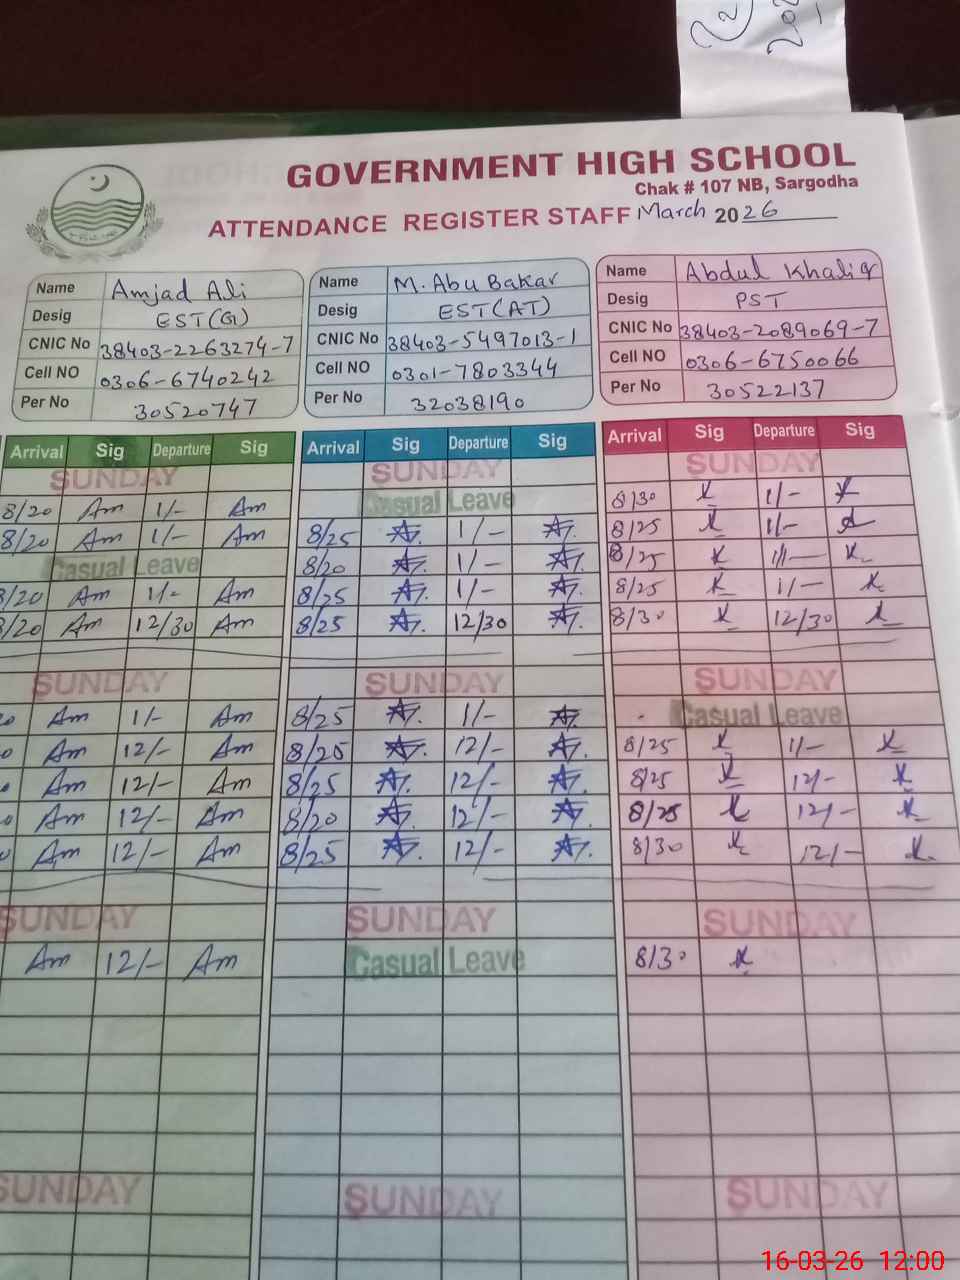 GOVERNMENT HIGH SCHOOL
Chak # 107 NB, Sargodha
ATTENDANCE REGISTER STAFF March 2026
Name Amjad Ali Name M. Abu Bakar Name Abdul Khaliq
Desig EST(G) Desig EST(AT) Desig PST
CNIC No 38403-2263274-7 CNIC No 38403-5497013-1 CNIC No 38403-2089069-7
Cell NO 0306-6740242 Cell NO 0301-7803344 Cell NO 0306-6750066
Per No 30520747 Per No 32038190 Per No 30522137
Arrival Sig Departure Sig Arrival Sig Departure Sig Arrival Sig Departure Sig
SUNDAY SUNDAY SUNDAY
8/20 Am 1/- Am Casual Leave 8/30 1/-
8/20 Am 1/- Am 8/25 1/- 8/25 1/-
Casual Leave 8/20 1/- 8/25 1/-
8/20 Am 1/- Am 8/25 1/- 8/25 1/-
8/20 Am 12/30 Am 8/25 12/30 8/30 12/30
SUNDAY SUNDAY SUNDAY
Am 1/- Am 8/25 1/- Casual Leave
Am 12/- Am 8/20 12/- 8/25 1/-
Am 12/- Am 8/25 12/- 8/25 12/-
Am 12/- Am 8/20 12/- 8/25 12/-
Am 12/- Am 8/25 12/- 8/30 12/-
SUNDAY SUNDAY SUNDAY
Am 12/- Am Casual Leave 8/30
SUNDAY SUNDAY SUNDAY
16-03-26 12:00